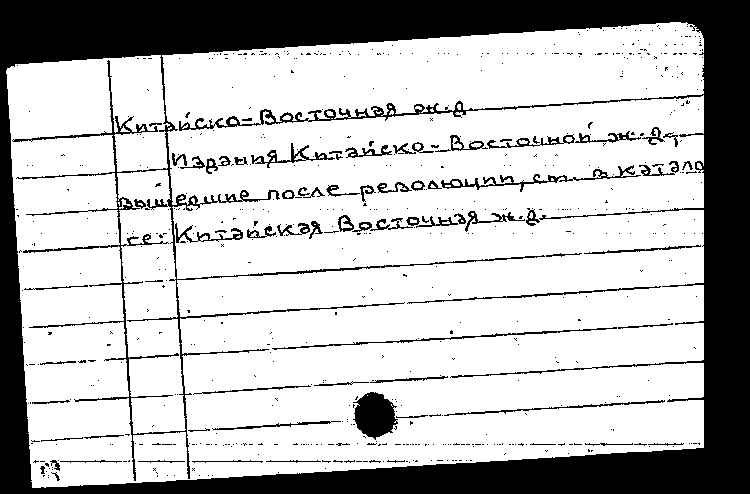 Китайско-Восточная ж.д.
Издания Китайско-Восточной ж.д.,
вышедшие после революции, см. в катало
ге: Китайская Восточная ж.д.